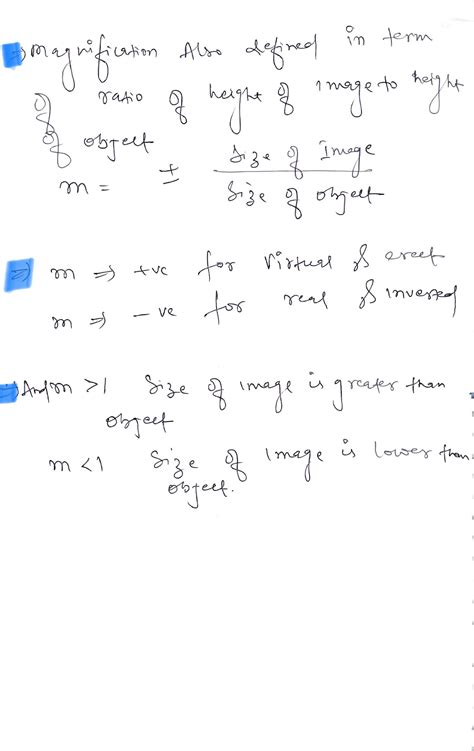 ⇒ Magnification Also defined in term
of ratio of height of image to height
of object
m = ± Size of Image / Size of object
⇒ m ⇒ +ve for Virtual & erect
m ⇒ -ve for real & inverted
⇒ And m >1 Size of image is greater than
object
m <1 Size of image is lower than
object.